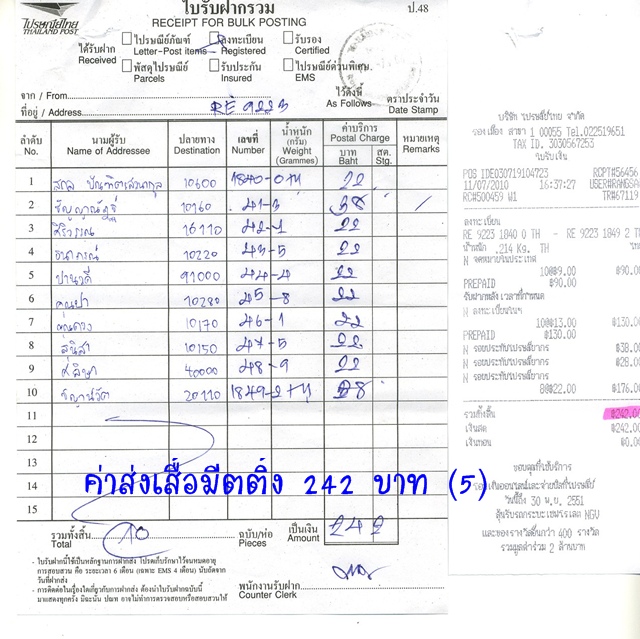 ใบรับฝากรวม
ป.48
RECEIPT FOR BULK POSTING
ไปรษณีย์ไทย
THAILAND POST
ได้รับฝาก
Received
ไปรษณีย์ภัณฑ์
Letter-Post items
ลงทะเบียน
Registered
รับรอง
Certified
พัสดุไปรษณีย์
Parcels
รับประกัน
Insured
ไปรษณีย์ด่วนพิเศษ
EMS
จาก / From
ไว้ดังนี้
As Follows
ตราประจำวัน
Date Stamp
ที่อยู่ / Address
RE 9223
ลำดับ No.
นามผู้รับ Name of Addressee
ปลายทาง Destination
เลขที่ Number
น้ำหนัก (กรัม) Weight (Grammes)
ค่าบริการ Postal Charge
บาท Baht
สต. Stg.
หมายเหตุ Remarks
1 10600 1840-0 TH 22
2 10160 41-3 38 /
3 16110 42-1 22
4 10220 43-5 22
5 91000 44-4 22
6 10280 45-8 22
7 10170 46-1 22
8 10150 47-5 22
9 40000 48-9 22
10 20110 1849-2 TH 28
11
12
13
14
15
ค่าส่งเสื้อมีตติ้ง 242 บาท (5)
รวมทั้งสิ้น
Total
10
ฉบับ/ห่อ
Pieces
เป็นเงิน
Amount
242
- ใบรับนี้ใช้เป็นหลักฐานการฝากส่ง โปรดเก็บรักษาไว้จนหมดอายุ
การสอบสวน คือ ระยะเวลา 6 เดือน (เฉพาะ EMS 4 เดือน) นับถัดจาก
วันที่ฝากส่ง
- การติดต่อในเรื่องใดเกี่ยวกับการฝากส่ง ต้องนำใบรับฝากฉบับนี้
มาแสดงทุกครั้ง มิฉะนั้น ปณท อาจไม่ทำการตรวจสอบหรือสอบสวนให้
พนักงานรับฝาก
Counter Clerk
บริษัท ไปรษณีย์ไทย จำกัด
รองเมือง สาขา 1 00055 Tel.022519651
TAX ID. 3030567253
ใบรับเงิน
POS IDE030719104723 RCPT#56456
11/07/2010 16:37:27 USER#RANGSA
RC#500459 W1 TR#67119
ลงทะเบียน
RE 9223 1840 0 TH - RE 9223 1849 2 TH
น้ำหนัก .214 Kg. TH
N จดหมายในประเทศ
10@฿9.00 ฿90.00
PREPAID ฿90.00
รับฝากหลัง เวลาที่กำหนด
N ลงทะเบียนฯ
10@฿13.00 ฿130.00
PREPAID ฿130.00
฿38.00
฿28.00
8@฿22.00 ฿176.00
รวมทั้งสิ้น ฿242.00
เงินสด ฿242.00
เงินทอน ฿0.00
ขอบคุณที่ใช้บริการ
30 พ.ย. 2551
และของรางวัลอื่นกว่า 400 รางวัล
รวมมูลค่าร่วม 2 ล้านบาท